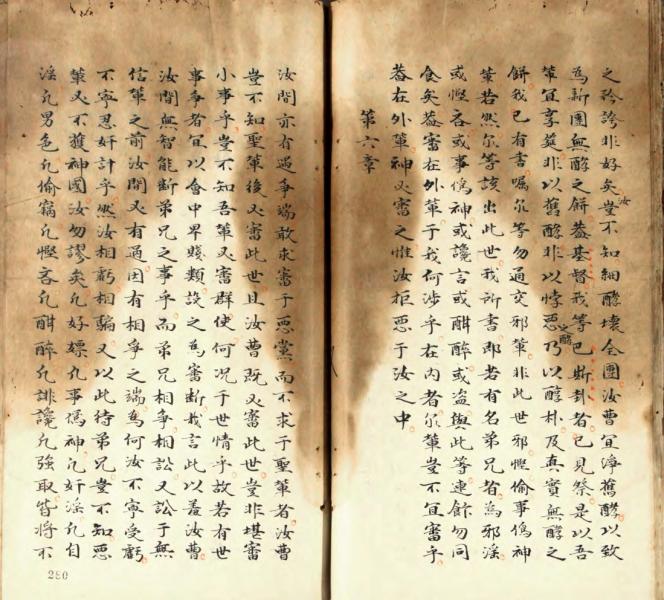 之矜誇非好矣豈汝不知細酵壞全團汝曹宜淨舊酵以致
為新團無酵之餅葢基督我等巴斯卦者已見祭是以吾
輩宜享筵非以舊酵非以悖惡之酵乃以醇朴及真實無酵之
餅我已有書囑尔等勿通交邪輩非此世邪慳偷事偽神
輩若然尔等該出此世我所書即若有名弟兄者為邪淫
或慳吝或事偽神或讒言或酣醉或盜與此等連餘勿同
食矣葢審在外輩于我何涉乎在內者尔輩豈不宜審乎
葢在外輩神乂審之惟汝拒惡于汝之中
第六章
汝間亦有遇爭端敢求審于惡黨而不求于聖輩者汝曹
豈不知聖輩後乂審此世且汝曹既乂審此世豈非堪審
小事乎豈不知吾輩乂審群使何况于世情乎故若有世
事爭者宜以會中畀賤類設之為審斷我言此以羞汝曹
汝間無智能斷弟兄之事乎而弟兄相爭相訟又訟于無
信輩之前汝間乂有過因有相爭之端為何汝不寧受虧
不寧忍奸計乎然汝相虧相騙又以此待弟兄豈不知惡
輩乂不獲神國汝勿謬矣凢好嫖凢事偽神凢奸淫凢自
淫凢男色凢偷竊凢慳吝凢酣醉凢誹讒凢強取皆將不
280